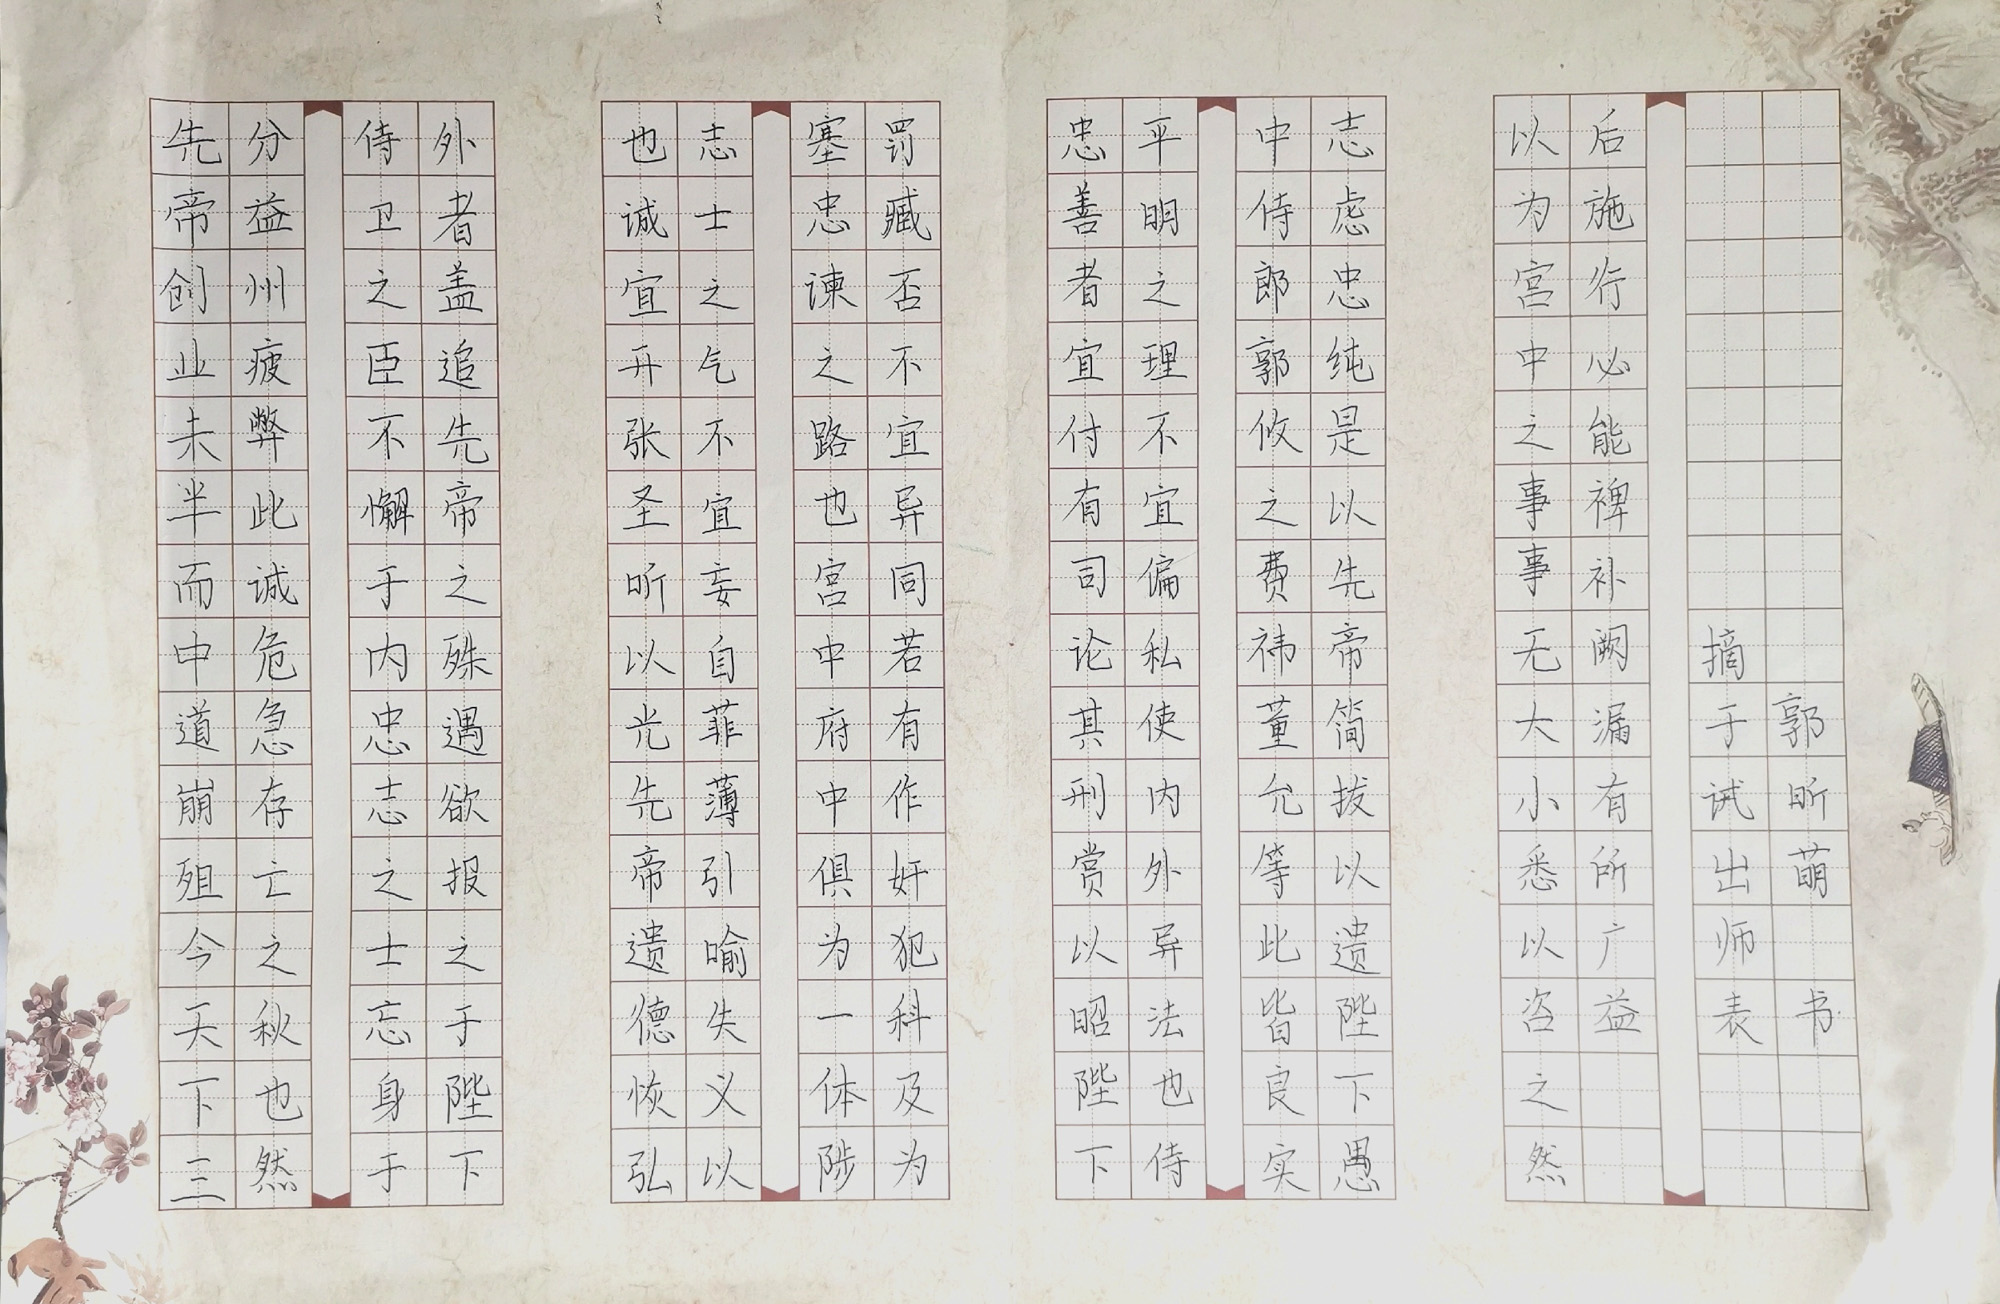 先帝创业未半而中道崩殂今天下三
分益州疲弊此诚危急存亡之秋也然
侍卫之臣不懈于内忠志之士忘身于
外者盖追先帝之殊遇欲报之于陛下
也诚宜再张圣听以光先帝遗德恢弘
志士之气不宜妄自菲薄引喻失义以
塞忠谏之路也宫中府中俱为一体陟
罚臧否不宜异同若有作奸犯科及为
忠善者宜付有司论其刑赏以昭陛下
平明之理不宜偏私使内外异法也侍
中侍郎郭攸之费祎董允等此皆良实
志虑忠纯是以先帝简拔以遗陛下愚
以为宫中之事事无大小悉以咨之然
后施行必能裨补阙漏有所广益
摘于试出师表
郭昕萌书